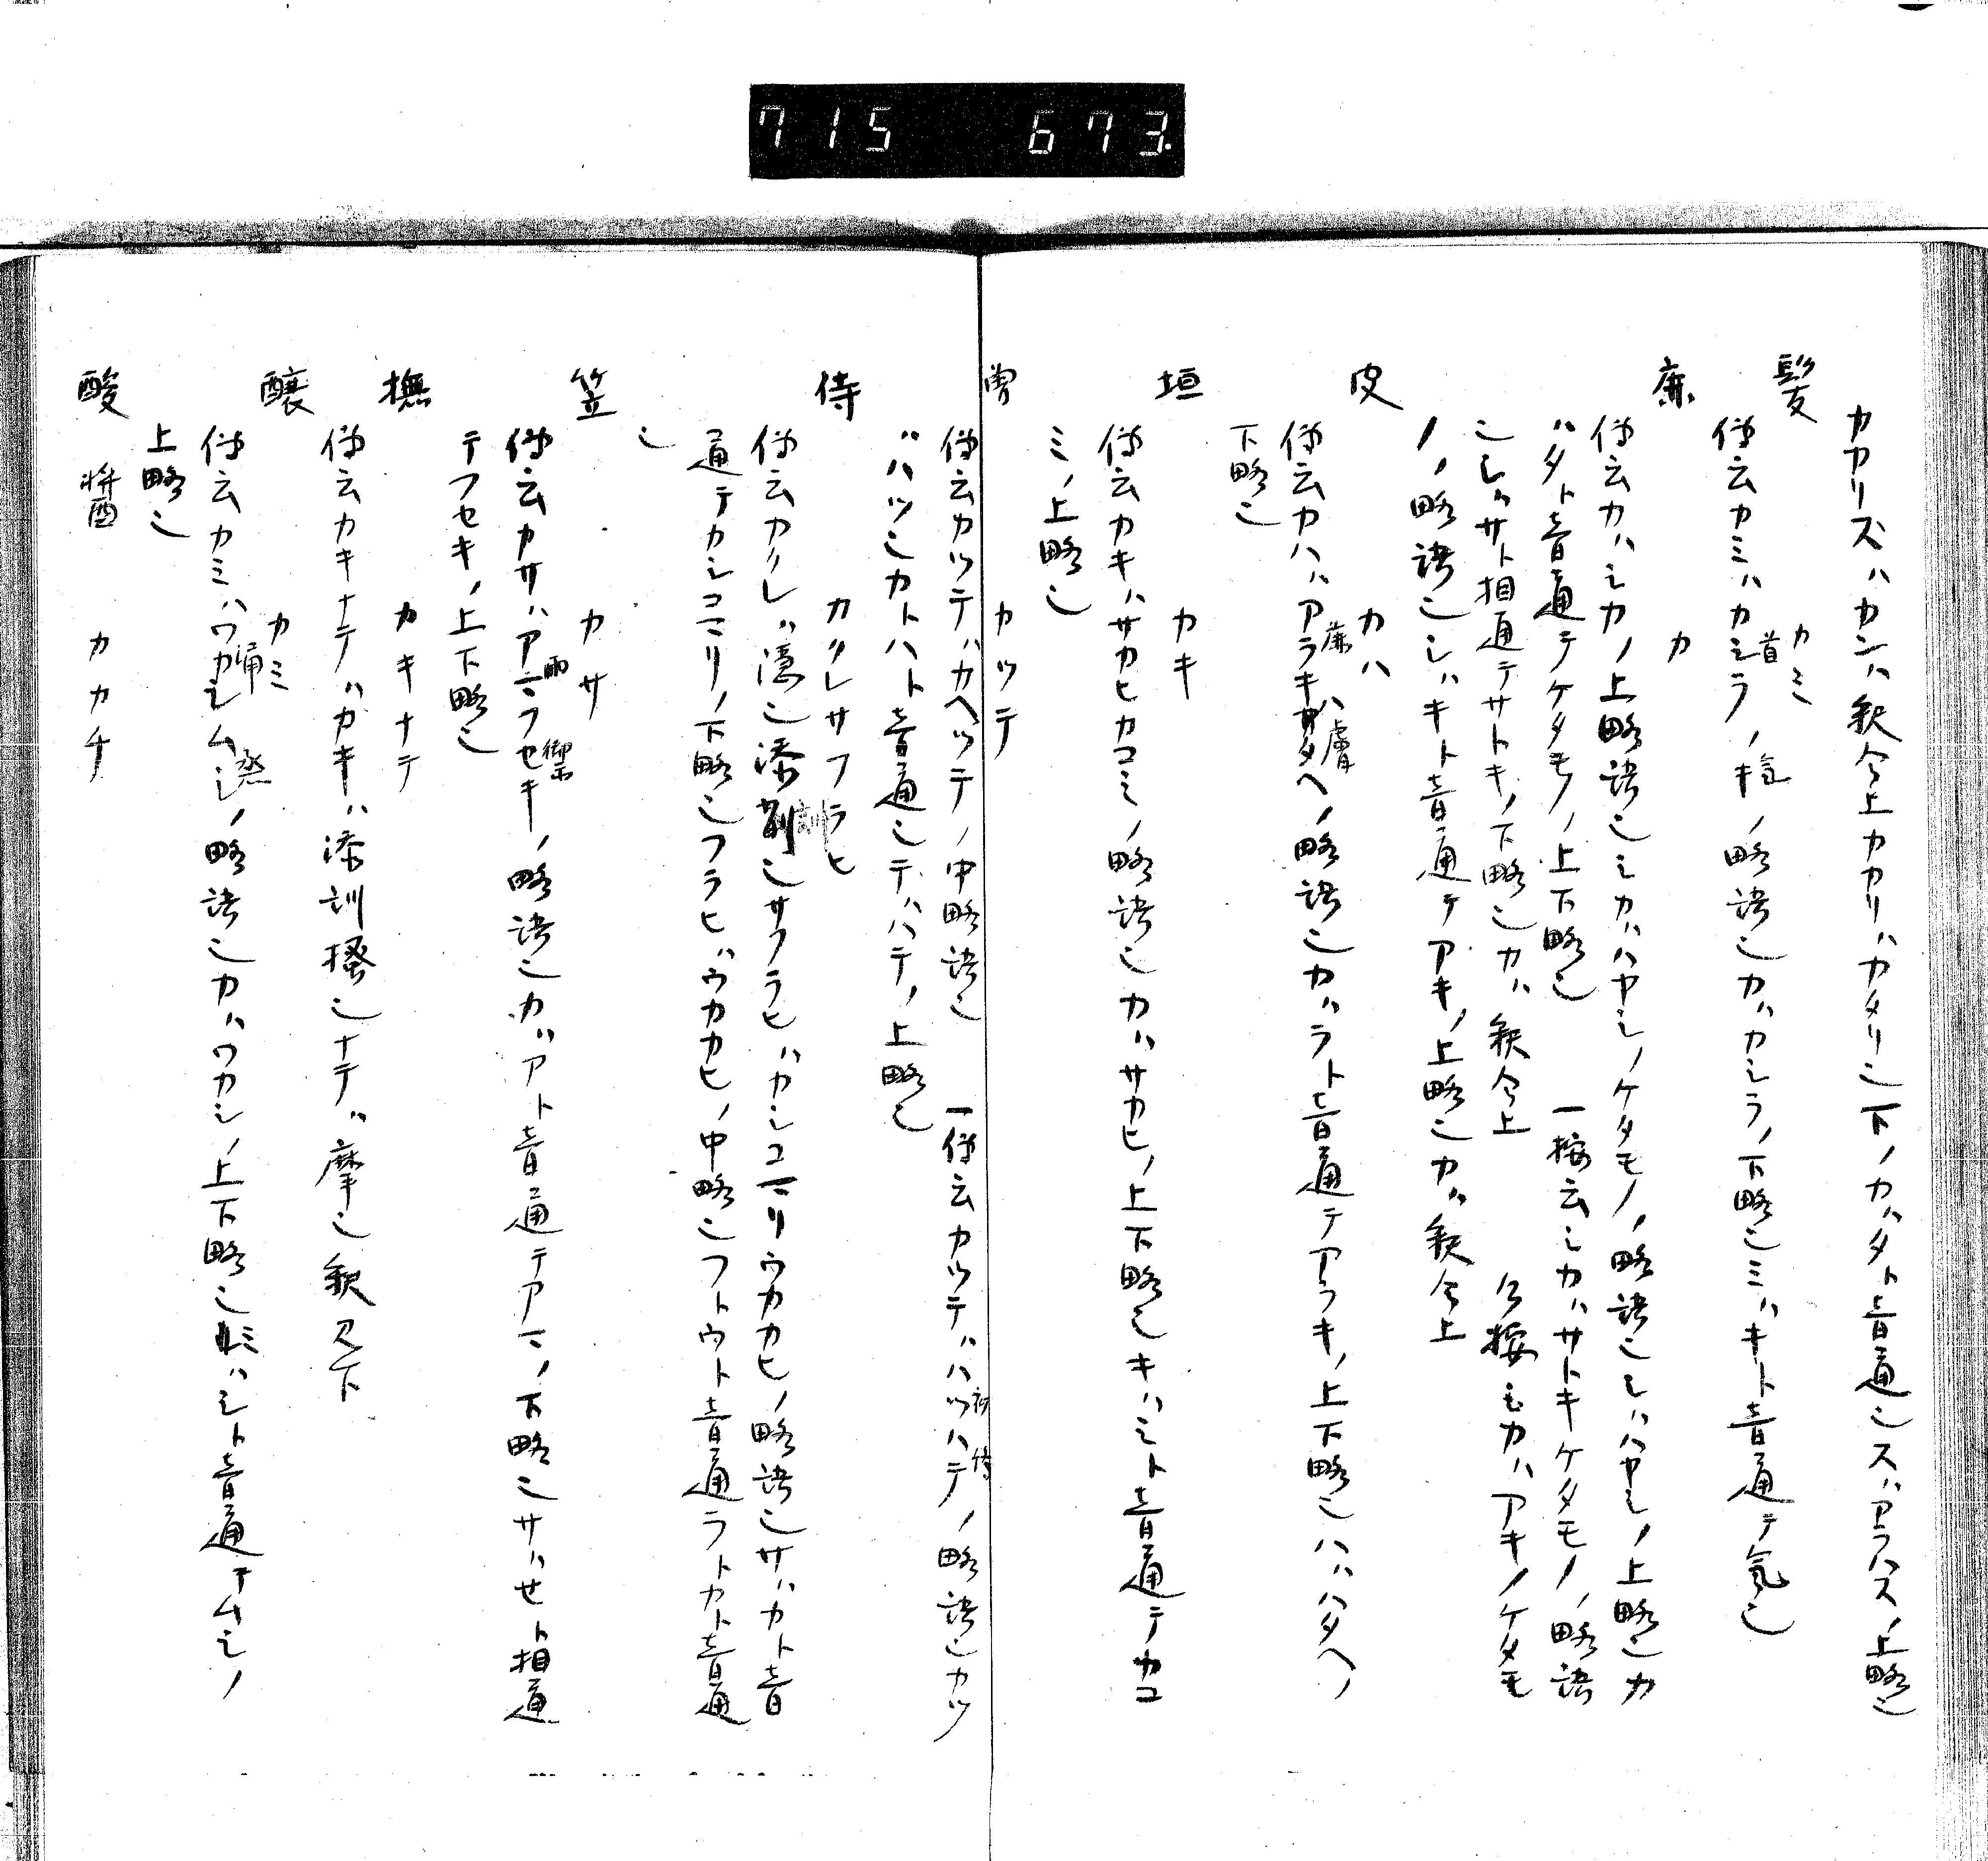 715 673
カカリズハカンハ釈今上カカリハカタリ也下ノカハタト音通也スハアラハスノ上略也
髪 カミ
傳云カミハカシラ首ノ気ノ略語也カハカシラノ下略也ミハキト音通テ気也
麻 カ
傳云カハシカノ上略語也シカハハヤシノケタモノノ略語也シハハヤシノ上略也カ
ハタト音通テケタモノノ上下略也 一按云シカハサトキケタモノノ略語
也シハサト相通テサトキノ下略也カハ釈今上 今按シカハアキノケタモ
ノノ略語也シハキト音通テアキノ上略也カハ釈今上
皮 カハ
傳云カハハアラキ麁ハタヘ膚ノ略語也カハラト音通テアラキノ上下略也ハハハタヘノ
下略也
垣 カキ
傳云カキハサカヒカコミノ略語也カハサカヒノ上下略也キハミト音通テカコ
ミノ上略也
曽 カツテ
傳云カツテハカヘツテノ中略語也 一傳云カツテハハツハテノ略語也カツ
ハハツ也カトハハト音通也テハハテノ上略也
侍 カクレサフラヒ
傳云カクレハ隠也添訓也サフラヒハカシコマリウカカヒノ略語也サハカト音
通テカシコマリノ下略也フラヒハウカカヒノ中略也フトウト音通ラトカト音通
也
笠 カサ
傳云カサハアマ雨フセキ禦ノ略語也カハアト音通テアマノ下略也サハセト相通
テフセキノ上下略也
撫 カキナテ
傳云カキナテハカキハ添訓掻也ナテハ摩也釈又下
醸 カミ
傳云カミハワカシ涌ムシ蒸ノ略語也カハワカシノ上下略也ミハシト音通テムシノ
上略也
酸 醤 カカチ